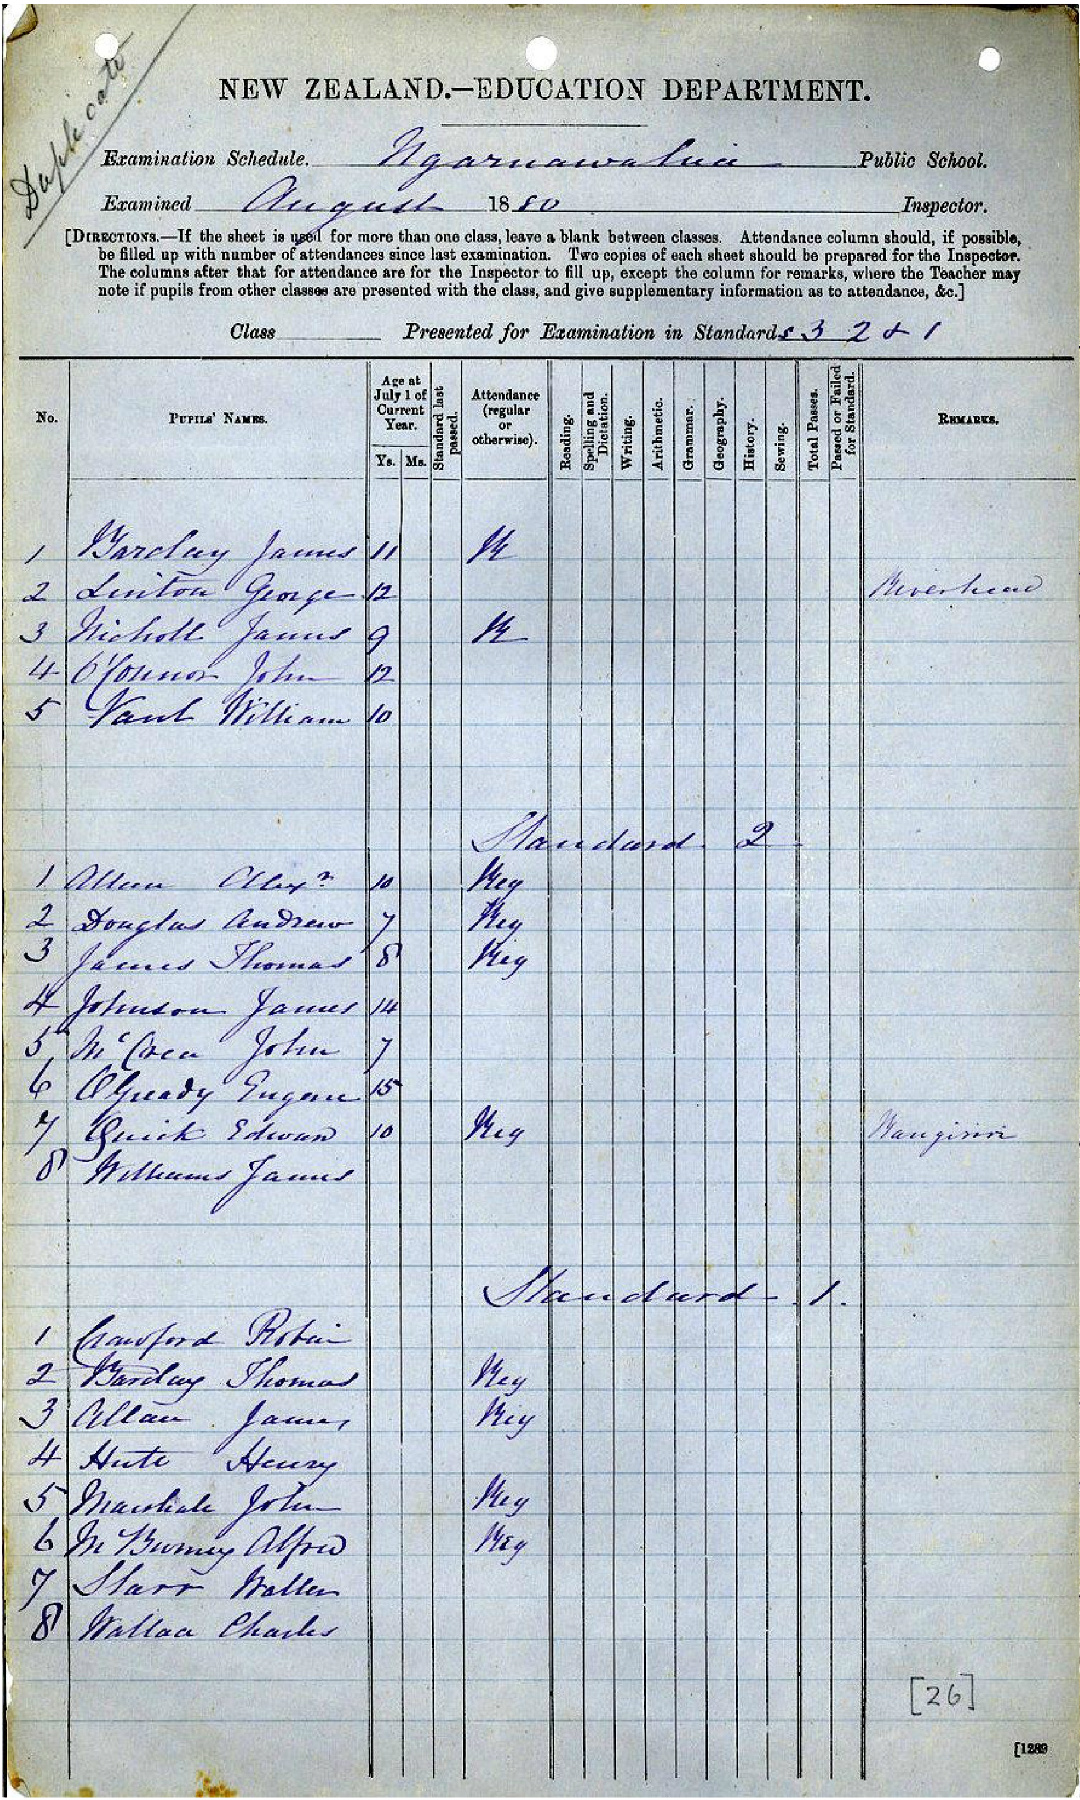 Duplicate
NEW ZEALAND.—EDUCATION DEPARTMENT.
Examination Schedule. Ngaruawahia Public School.
Examined August 1880 Inspector.
[DIRECTIONS.—If the sheet is used for more than one class, leave a blank between classes. Attendance column should, if possible,
be filled up with number of attendances since last examination. Two copies of each sheet should be prepared for the Inspector.
The columns after that for attendance are for the Inspector to fill up, except the column for remarks, where the Teacher may
note if pupils from other classes are presented with the class, and give supplementary information as to attendance, &c.]
Class Presented for Examination in Standards 3 2 & 1
No. PUPILS' NAMES. Age at July 1 of Current Year. Ys. Ms. Standard last passed. Attendance (regular or otherwise). Reading. Spelling and Dictation. Writing. Arithmetic. Grammar. Geography. History. Sewing. Total Passes. Passed or Failed for Standard. REMARKS.
1 Barclay James 11 R
2 Linton George 12 Riverhead
3 Nicholl James 9 R
4 O'Connor John 12
5 Vant William 10
Standard 2
1 Allan Alexr 10 Reg
2 Douglas Andrew 7 Reg
3 James Thomas 8 Reg
4 Johnson James 14
5 McCrea John 7
6 O'Grady Eugene 15
7 Quick Edwan 10 Reg Rangiriri
8 Williams James
Standard 1.
1 Crawford Robin
2 Barclay Thomas Reg
3 Allan James Reg
4 Hute Henry
5 Marshall John Reg
6 McBurney Alfred Reg
7 Starr Walter
8 Wallace Charles
[26]
[1289